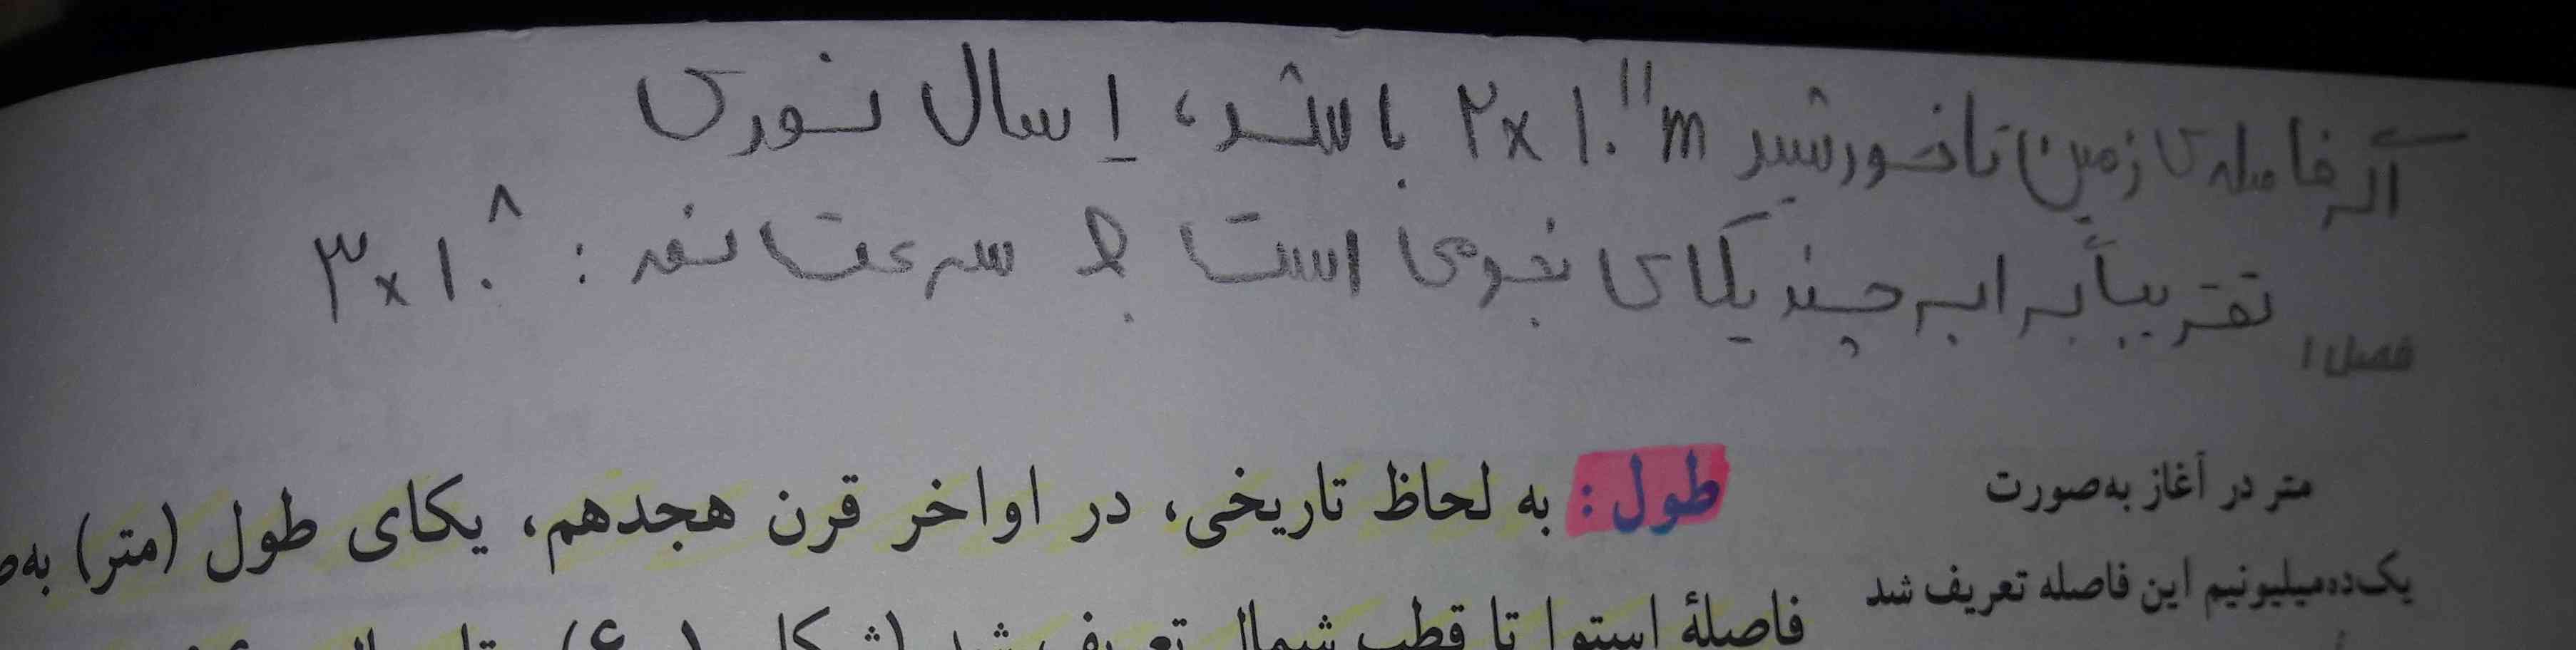 اگر فاصله‌ی زمین تا خورشید ۲×۱۰^۱۱ m باشد، ۱ سال نوری
تقریباً برابر چند یکای نجومی است؟ سرعت نور : ۳×۱۰^۸
فصل ۱
متر در آغاز به‌صورت
یک‌ده‌میلیونیم این فاصله تعریف شد
طول: به لحاظ تاریخی، در اواخر قرن هجدهم، یکای طول (متر) به‌ص
فاصلهٔ استوا تا قطب شمال تعریف شد (شکل